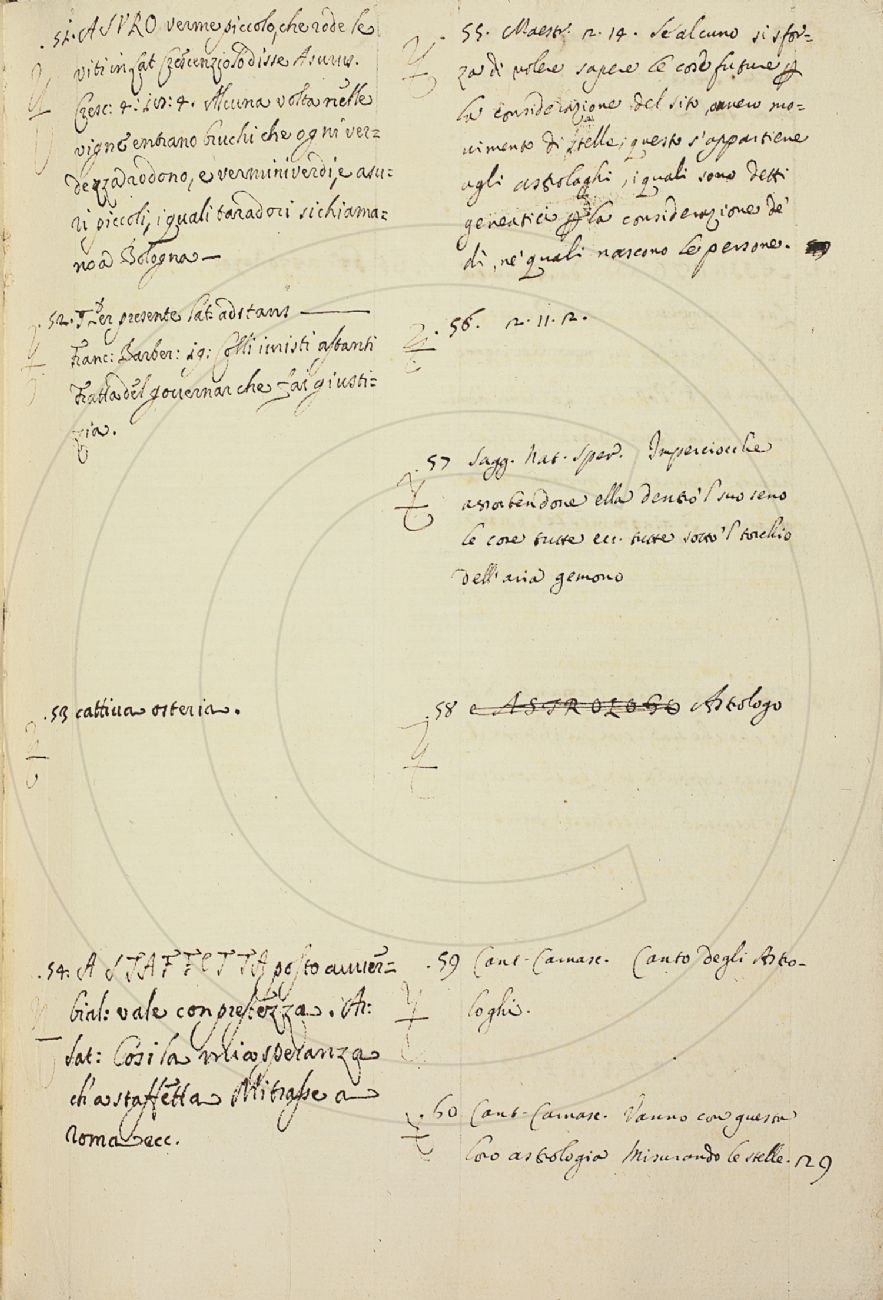 .51. ASURO verme piccolo, che rode le
viti in lat. Crescenzo lo disse Asurus.
Cresc: 4: 18: 4. Alcuna volta nelle
vigne entrano bruchi che ogni ver=
dezza rodono, e vermini verdi, e asu:
ri piccoli, i quali taradori si chiama=
no a Bologna —
.52. Per presente lat: adstans ———
Franc: Barber: 19: Colli iusti astanti
Tratta del governar che fai giusti=
zia.
.53 cattiua osteria.
.54. A STAFFETTA posto auuer=
bial: vale con prestezza. Ar:
Sat: Così la mia speranza
ch'a staffetta Mi trasse a
roma ecc.
55. Maestr. 2. 14. Se alcuno si sfor-
za di volere sapere le cose future p
la considerazione del sito, ovvero mo-
vimento di stelle, questo s'appartiene
agli astrolaghi, i quali sono detti
genentici p la considerazione de'
dì, ne' quali nascono le persone.
.56. 2. 11. 2.
.57 Sagg. Nat. Sper. Imperciocche
assorbendone ella dentro 'l suo seno
le core tutte ecc. tutte sotto 'l torchio
dell'aria gemono
.58 e ASTROLOGO Astologo
.59 Cant. Carnasc. Canto degli Asto-
loghi.
.60 Cant. Carnasc. Vanno con questa
loro astrologia Misurando le stelle. 129